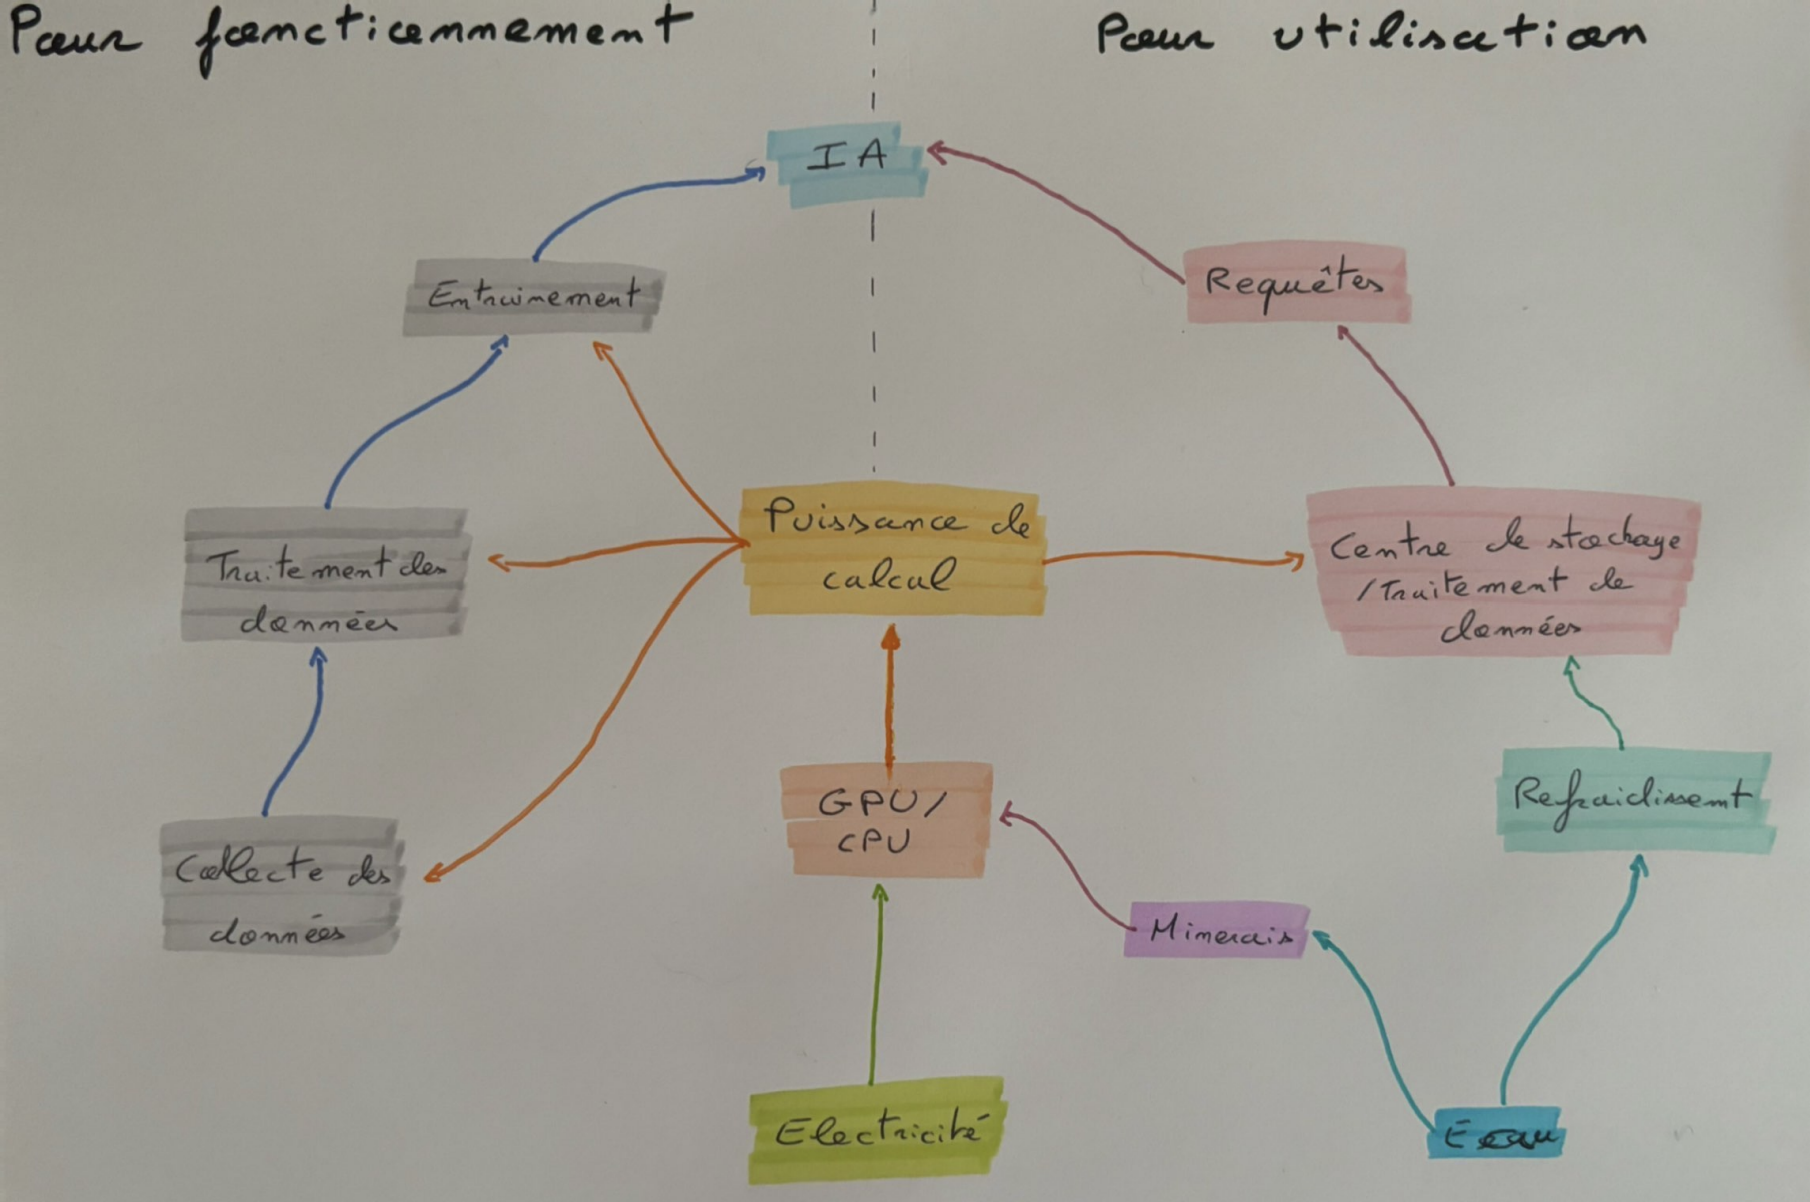 Pour fonctionnement
Pour utilisation
IA
Entrainement
Requêtes
Puissance de
calcul
Traitement des
données
Centre de stockage
/Traitement de
données
GPU/
CPU
Refroidissemt
Collecte des
données
Minerais
Electricité
Eau